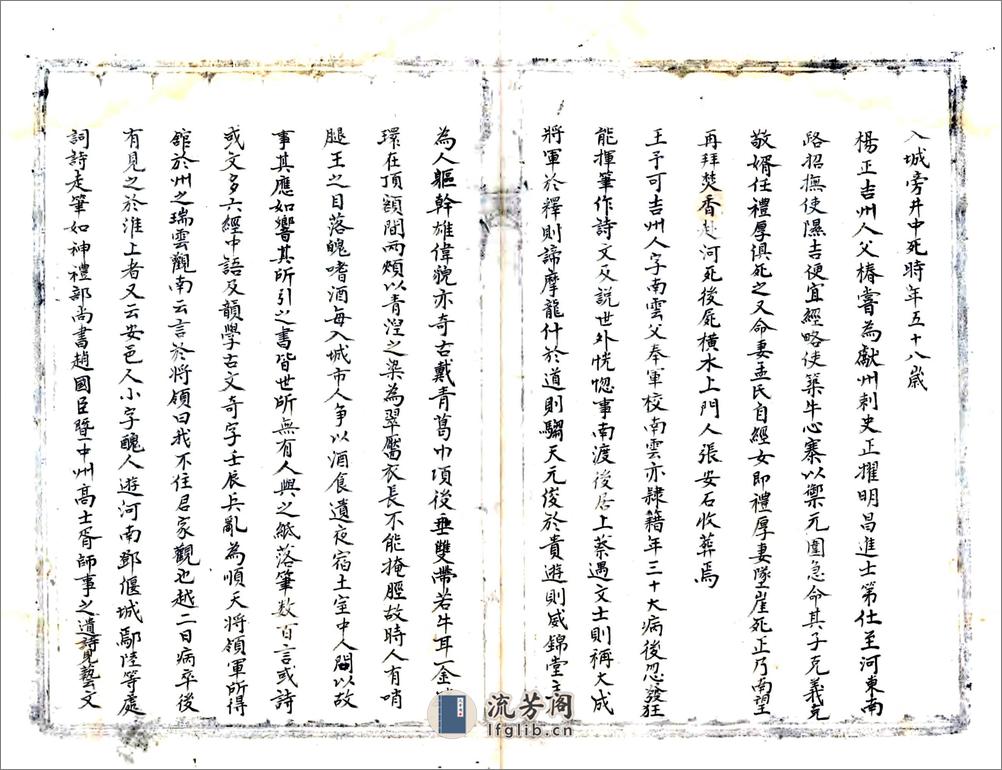 入城旁井中死時年五十八歲
楊正吉州人父椿嘗為獻州刺史正擢明昌進士第仕至河東南
路招撫使隰吉便宜經略使築牛心寨以禦元圍急命其子克義克
敬婿任禮厚俱死之又命妻孟氏自經女即禮厚妻墜崖死正乃南望
再拜焚香赴河死後屍橫水上門人張安石收葬焉
王予可吉州人字南雲父奉軍校南雲亦隸籍年三十大病後忽發狂
能揮筆作詩文及說世外恍惚事南渡後居上蔡遇文士則稱大成
將軍於釋則諦摩龍什於道則騶天元俊於貴遊則威錦堂主
為人軀幹雄偉貌亦奇古戴青葛巾項後垂雙帶若牛耳一金
環在頂額間兩頰以青涅之染為翠靨衣長不能掩脛故時人有哨
腿王之目落魄嗜酒每入城市人爭以酒食遺夜宿土室中人問以故
事其應如響其所引之書皆世所無有人與之紙落筆数百言或詩
或文多六經中語及韻學古文奇字壬辰兵亂為順天將領軍所得
館於州之瑞雲觀南云言於將領曰我不住君家觀也越二日病卒後
有見之於淮上者又云安邑人小字醜人遊河南鄧偃城鄢陸等處
詞詩走筆如神禮部尚書趙國臣暨中州高士胥師事之遺詩見藝文
流芳阁
lfglib.cn